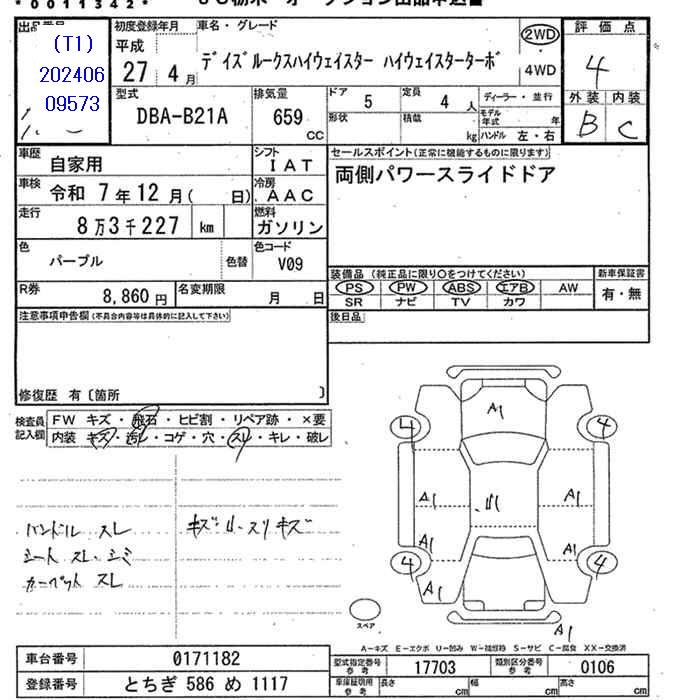 *0011342*
(T1)
202406
09573
初度登録年月
平成
27年 4月
車名・グレード
デイズルークスハイウェイスター ハイウェイスターターボ
2WD
4WD
評価点
4
外装 内装
B C
型式
DBA-B21A
排気量
659
CC
ドア 5 定員 4 人
形状 積載 kg
ディーラー・並行
モデル年式 年
ハンドル 左・右
車歴
自家用
シフト
IAT
車検
令和 7年12月( 日)
冷房
AAC
走行
8万3千227 km
燃料
ガソリン
色
パープル
色替
色コード
V09
R券
8,860円
名変期限
月 日
セールスポイント(正常に機能するものに限ります)
両側パワースライドドア
装備品(純正品に限り○をつけてください)
新車保証書
PS PW ABS エアB AW
SR ナビ TV カワ
有・無
後日品
注意事項申告欄(不具合内容等は具体的に記入して下さい)
修復歴 有〔箇所 〕
検査員記入欄
FW キズ・飛石・ヒビ割・リペア跡・×要
内装 キズ・汚レ・コゲ・穴・スレ・キレ・破レ
ハンドル スレ
シート スレ・シミ
カーペット スレ
A1
4 4
A1 A1
A1
4 4
A1 A1
A1
スペア
A-キズ E-エクボ U-凹み W-補修跡 S-サビ C-腐食 XX-交換済
車台番号 0171182
登録番号 とちぎ 586 め 1117
型式指定番号 参考 17703
類別区分番号 参考 0106
車庫証明用 参考 長さ cm 幅 cm 高さ cm